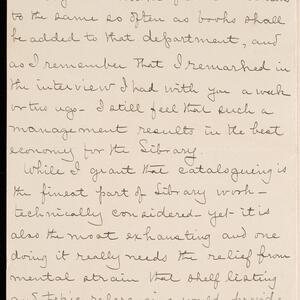 to the same so often as books shall
be added to that department, and
as I remember that I remarked in
the interview I had with you a week
or two ago - I still feel that such a
management results in the best
economy for the Library.
While I grant that cataloguing is
the finest part of Library work -
technically considered - yet - it is
also the most exhausting and one
doing it really needs the relief from
mental strain that shelf listing